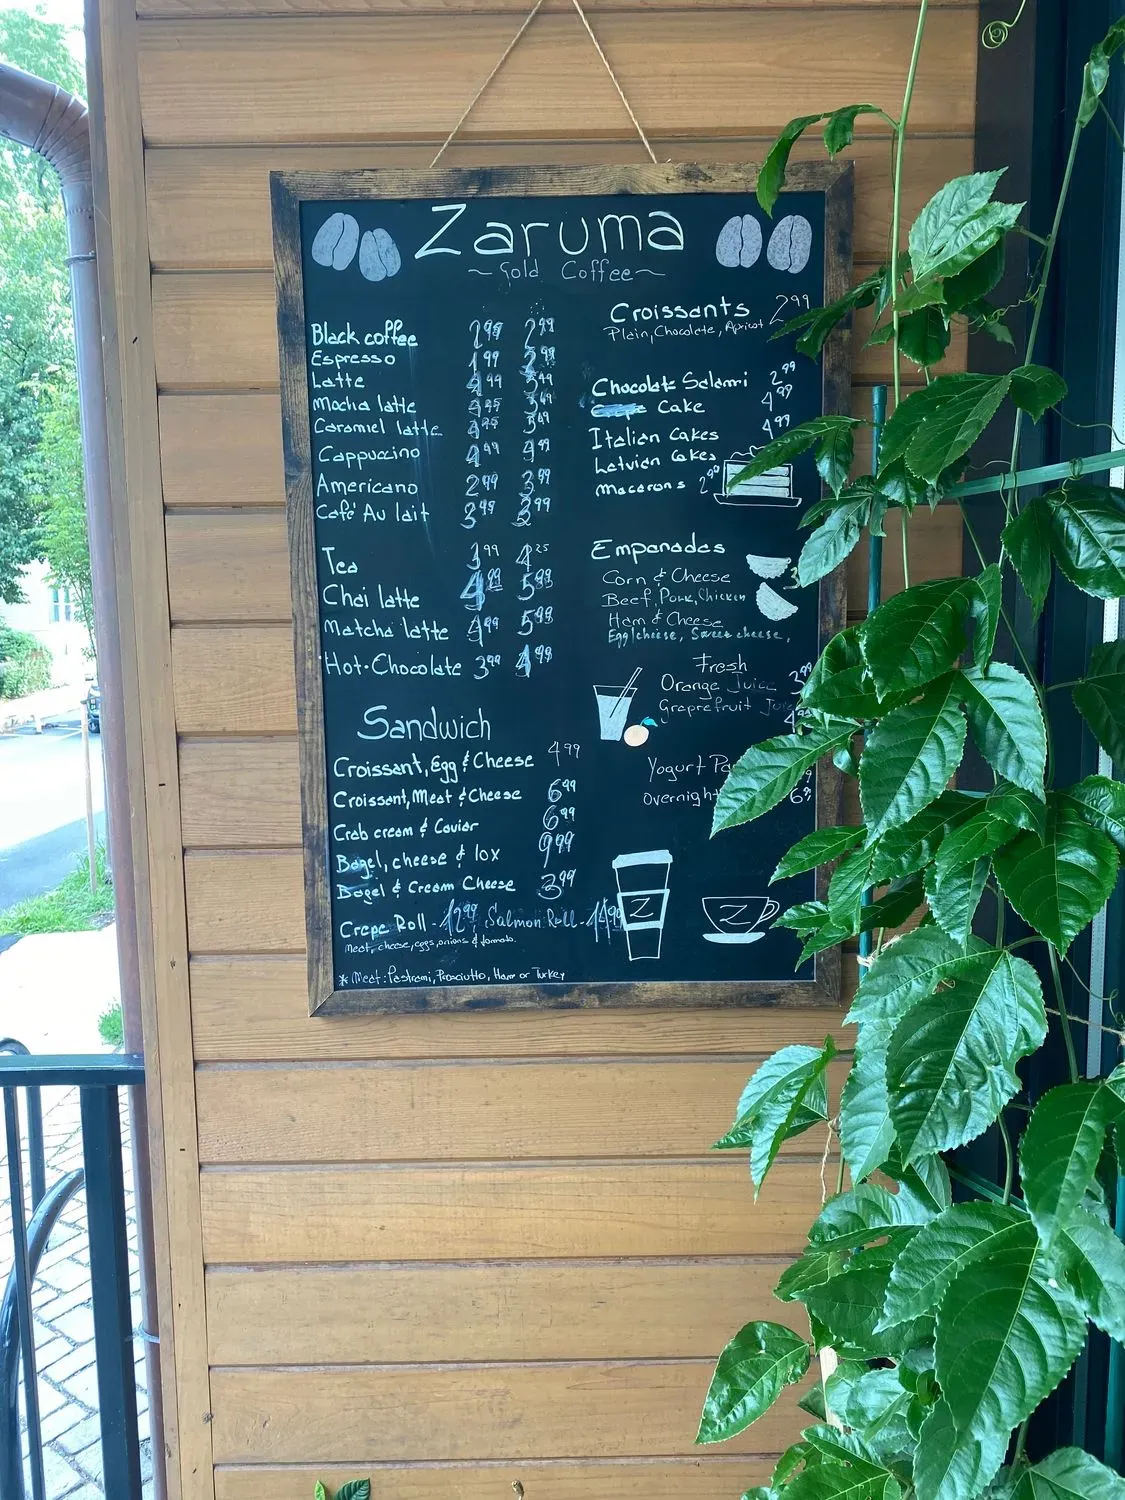 Zaruma
~ Gold Coffee ~
Black coffee 2.99
Espresso 1.99
Latte
Mocha latte
Caramel latte
Cappuccino 4.99 4.99
Americano 2.99 3.99
Café Au lait 3.99
Tea 3.99 4.25
Chai latte 4.99 5.99
Matcha latte 4.99 5.99
Hot Chocolate 3.99 4.99
Sandwich
Croissant, Egg & Cheese 4.99
Croissant, Meat & Cheese 6.99
Crab cream & Caviar 6.99
Bagel, cheese & lox 9.99
Bagel & Cream Cheese 3.99
Crepe Roll - 12.99 Salmon Roll -
Meat, cheese, eggs, onions & tomato.
* Meat: Pastrami, Prosciutto, Ham or Turkey
Croissants 2.99
Plain, Chocolate, Apricot
Chocolate Salami 2.99
Cake 4.99
Italian Cakes 4.99
Latvian Cakes
Macarons
Empanadas
Corn & Cheese
Beef, Pork, Chicken
Ham & Cheese
Egg/cheese, Sweet cheese,
Fresh
Orange Juice
Grapefruit
Yogurt
Overnight
Z
Z